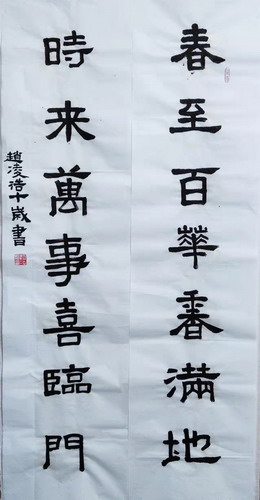 春至百華香滿地
時来萬事喜臨門
趙凌浩十歲書